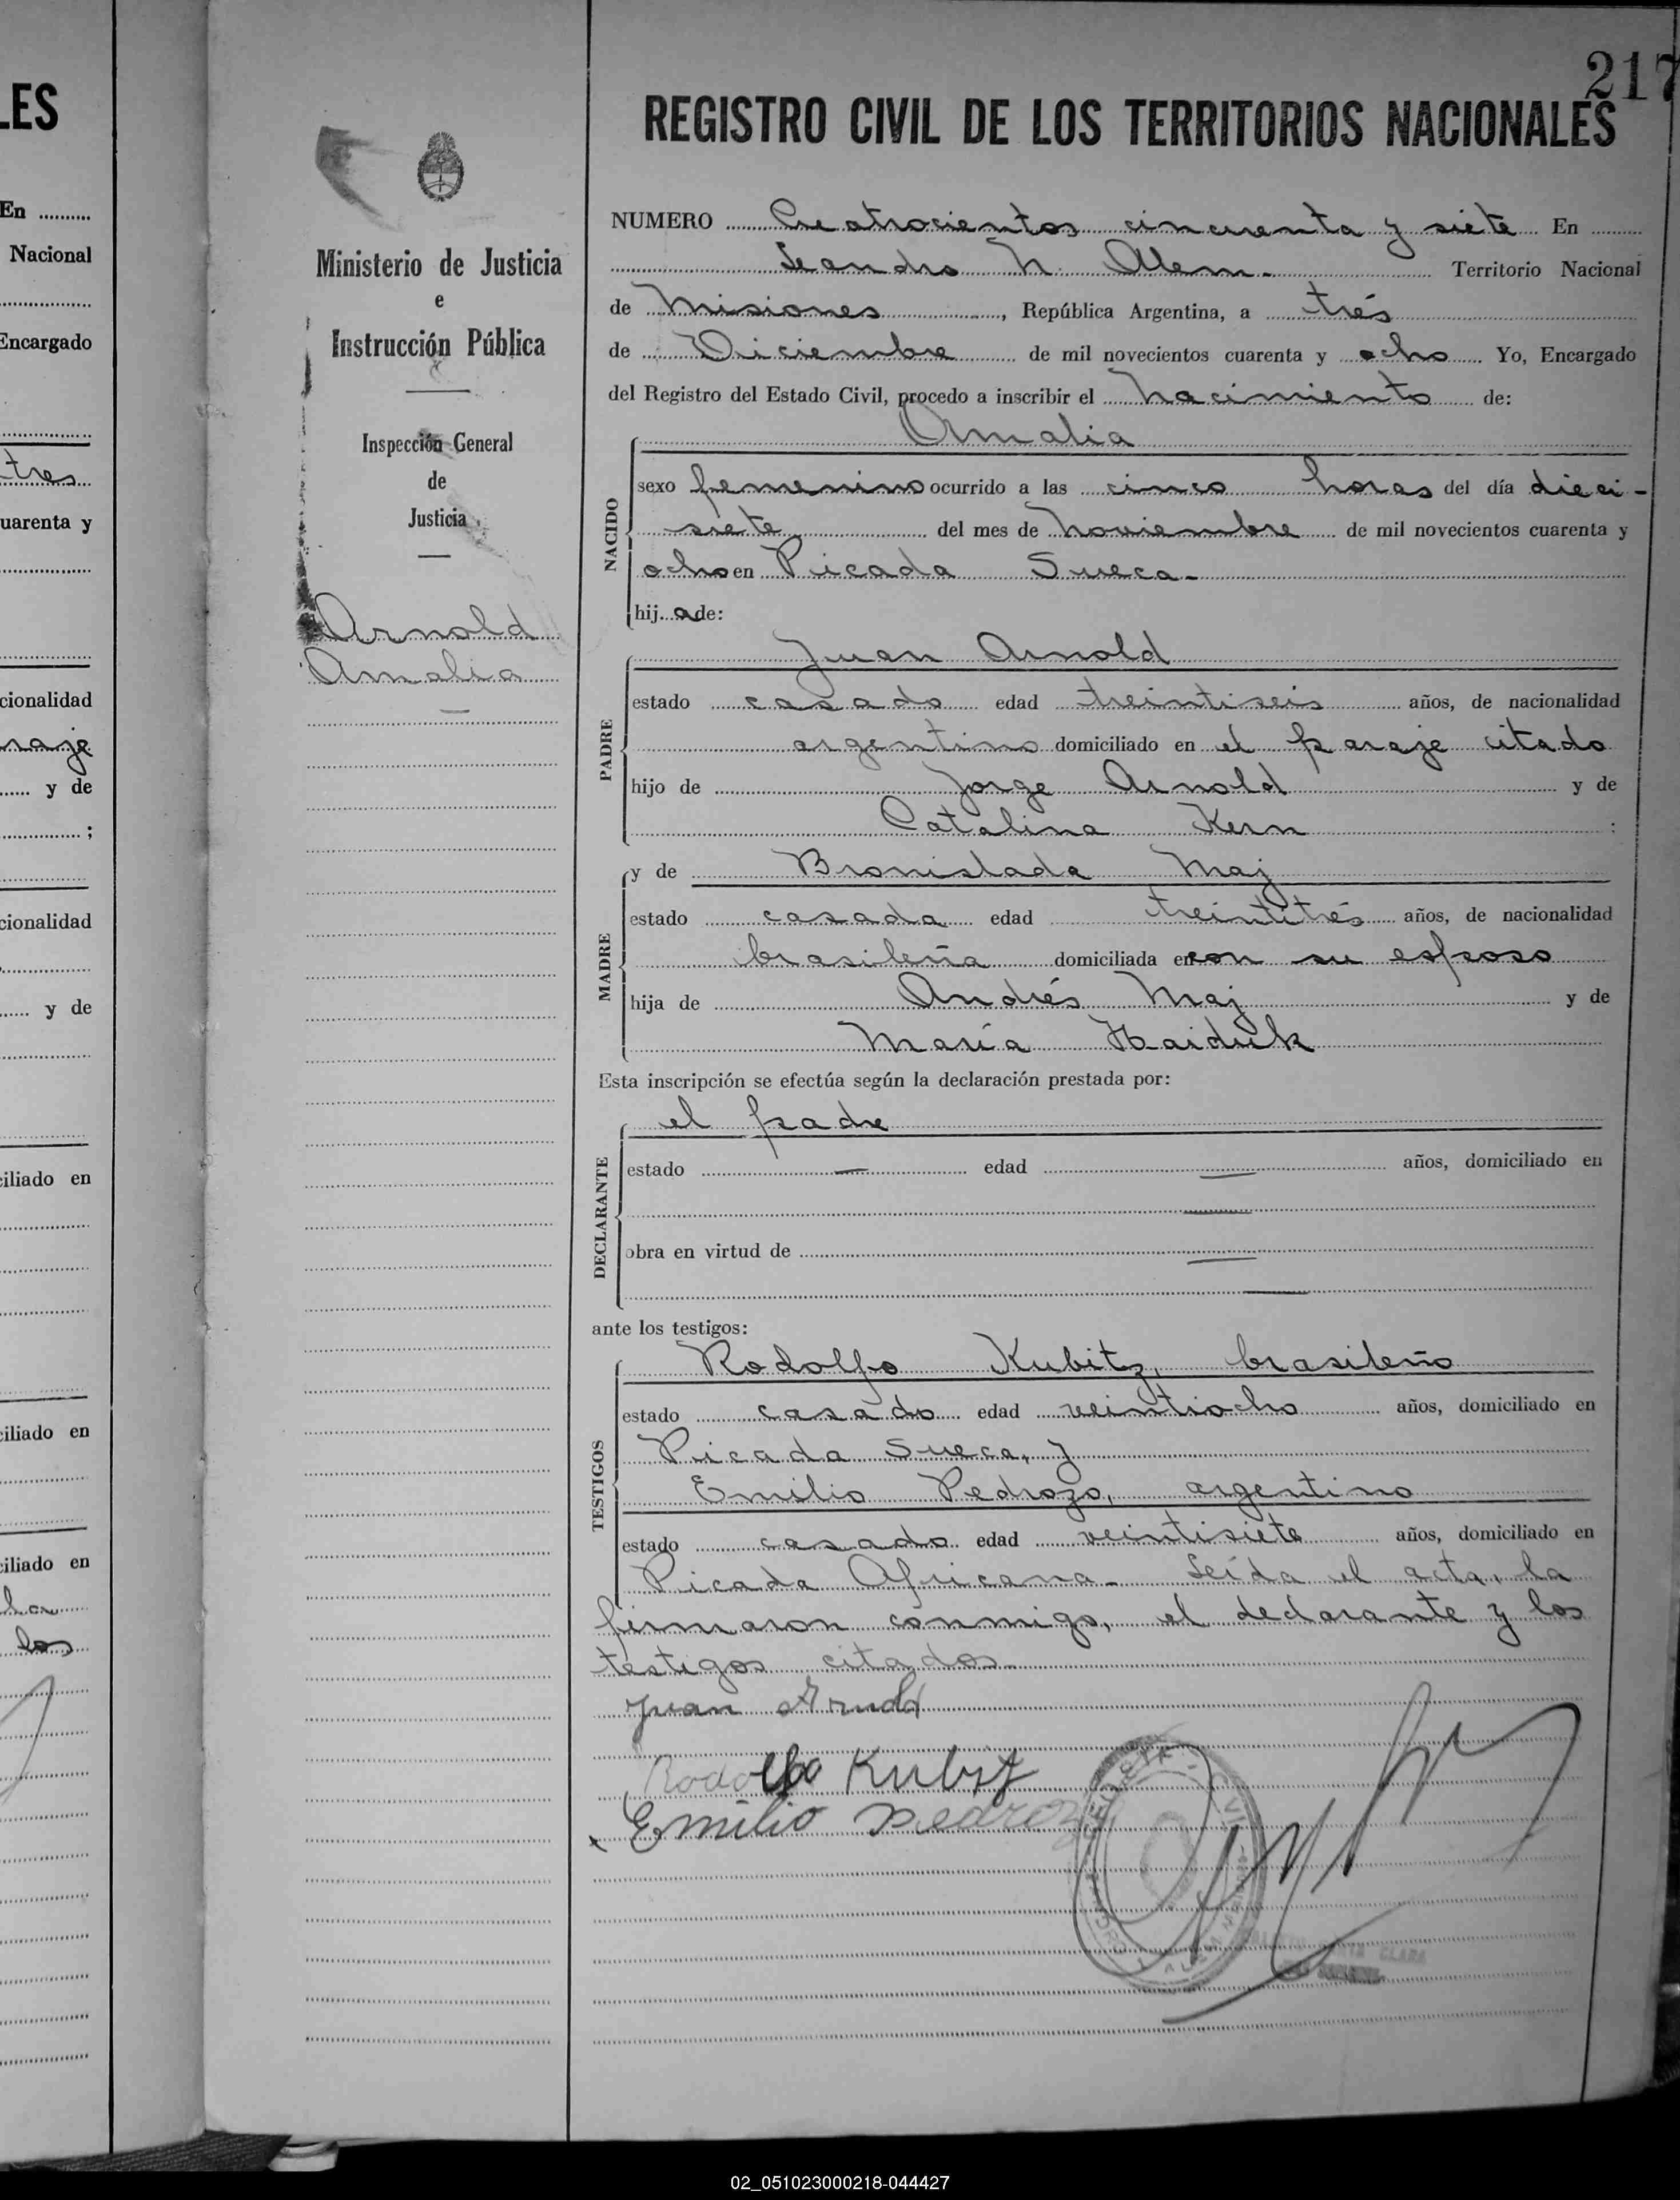 LES
En
Nacional
Encargado
tres
uarenta y
cionalidad
raje
y de
;
cionalidad
y de
ciliado en
ciliado en
ciliado en
la
los
217
REGISTRO CIVIL DE LOS TERRITORIOS NACIONALES
Ministerio de Justicia
e
Instrucción Pública
Inspección General
de
Justicia
Arnold
Amalia
NUMERO Cuatrocientos cincuenta y siete En
Leandro N. Alem. Territorio Nacional
de Misiones, República Argentina, a trés
de Diciembre de mil novecientos cuarenta y ocho Yo, Encargado
del Registro del Estado Civil, procedo a inscribir el nacimiento de:
Amalia
NACIDO
sexo femenino ocurrido a las cinco horas del día dieci-
siete del mes de noviembre de mil novecientos cuarenta y
ocho en Picada Sueca-
hij a de:
Juan Arnold
PADRE
estado casado edad treintiseis años, de nacionalidad
argentino domiciliado en el paraje citado
hijo de Jorge Arnold y de
Catalina Kern ;
y de Bronislada Maj
MADRE
estado casada edad treintitrés años, de nacionalidad
brasileña domiciliada en con su esposo
hija de Andrés Maj y de
María Haiduk
Esta inscripción se efectúa según la declaración prestada por:
el padre
DECLARANTE
estado — edad — años, domiciliado en
—
obra en virtud de —
—
ante los testigos:
Rodolfo Kubitz, brasileño
TESTIGOS
estado casado edad veintiocho años, domiciliado en
Picada Sueca, y
Emilio Pedrozo, argentino
estado casado edad veintisiete años, domiciliado en
Picada Africana- Leída el acta, la
firmaron conmigo, el declarante y los
testigos citados
Juan Arnold
Rodolfo Kubitz
Emilio Pedrozo
CLARA
02_051023000218-044427